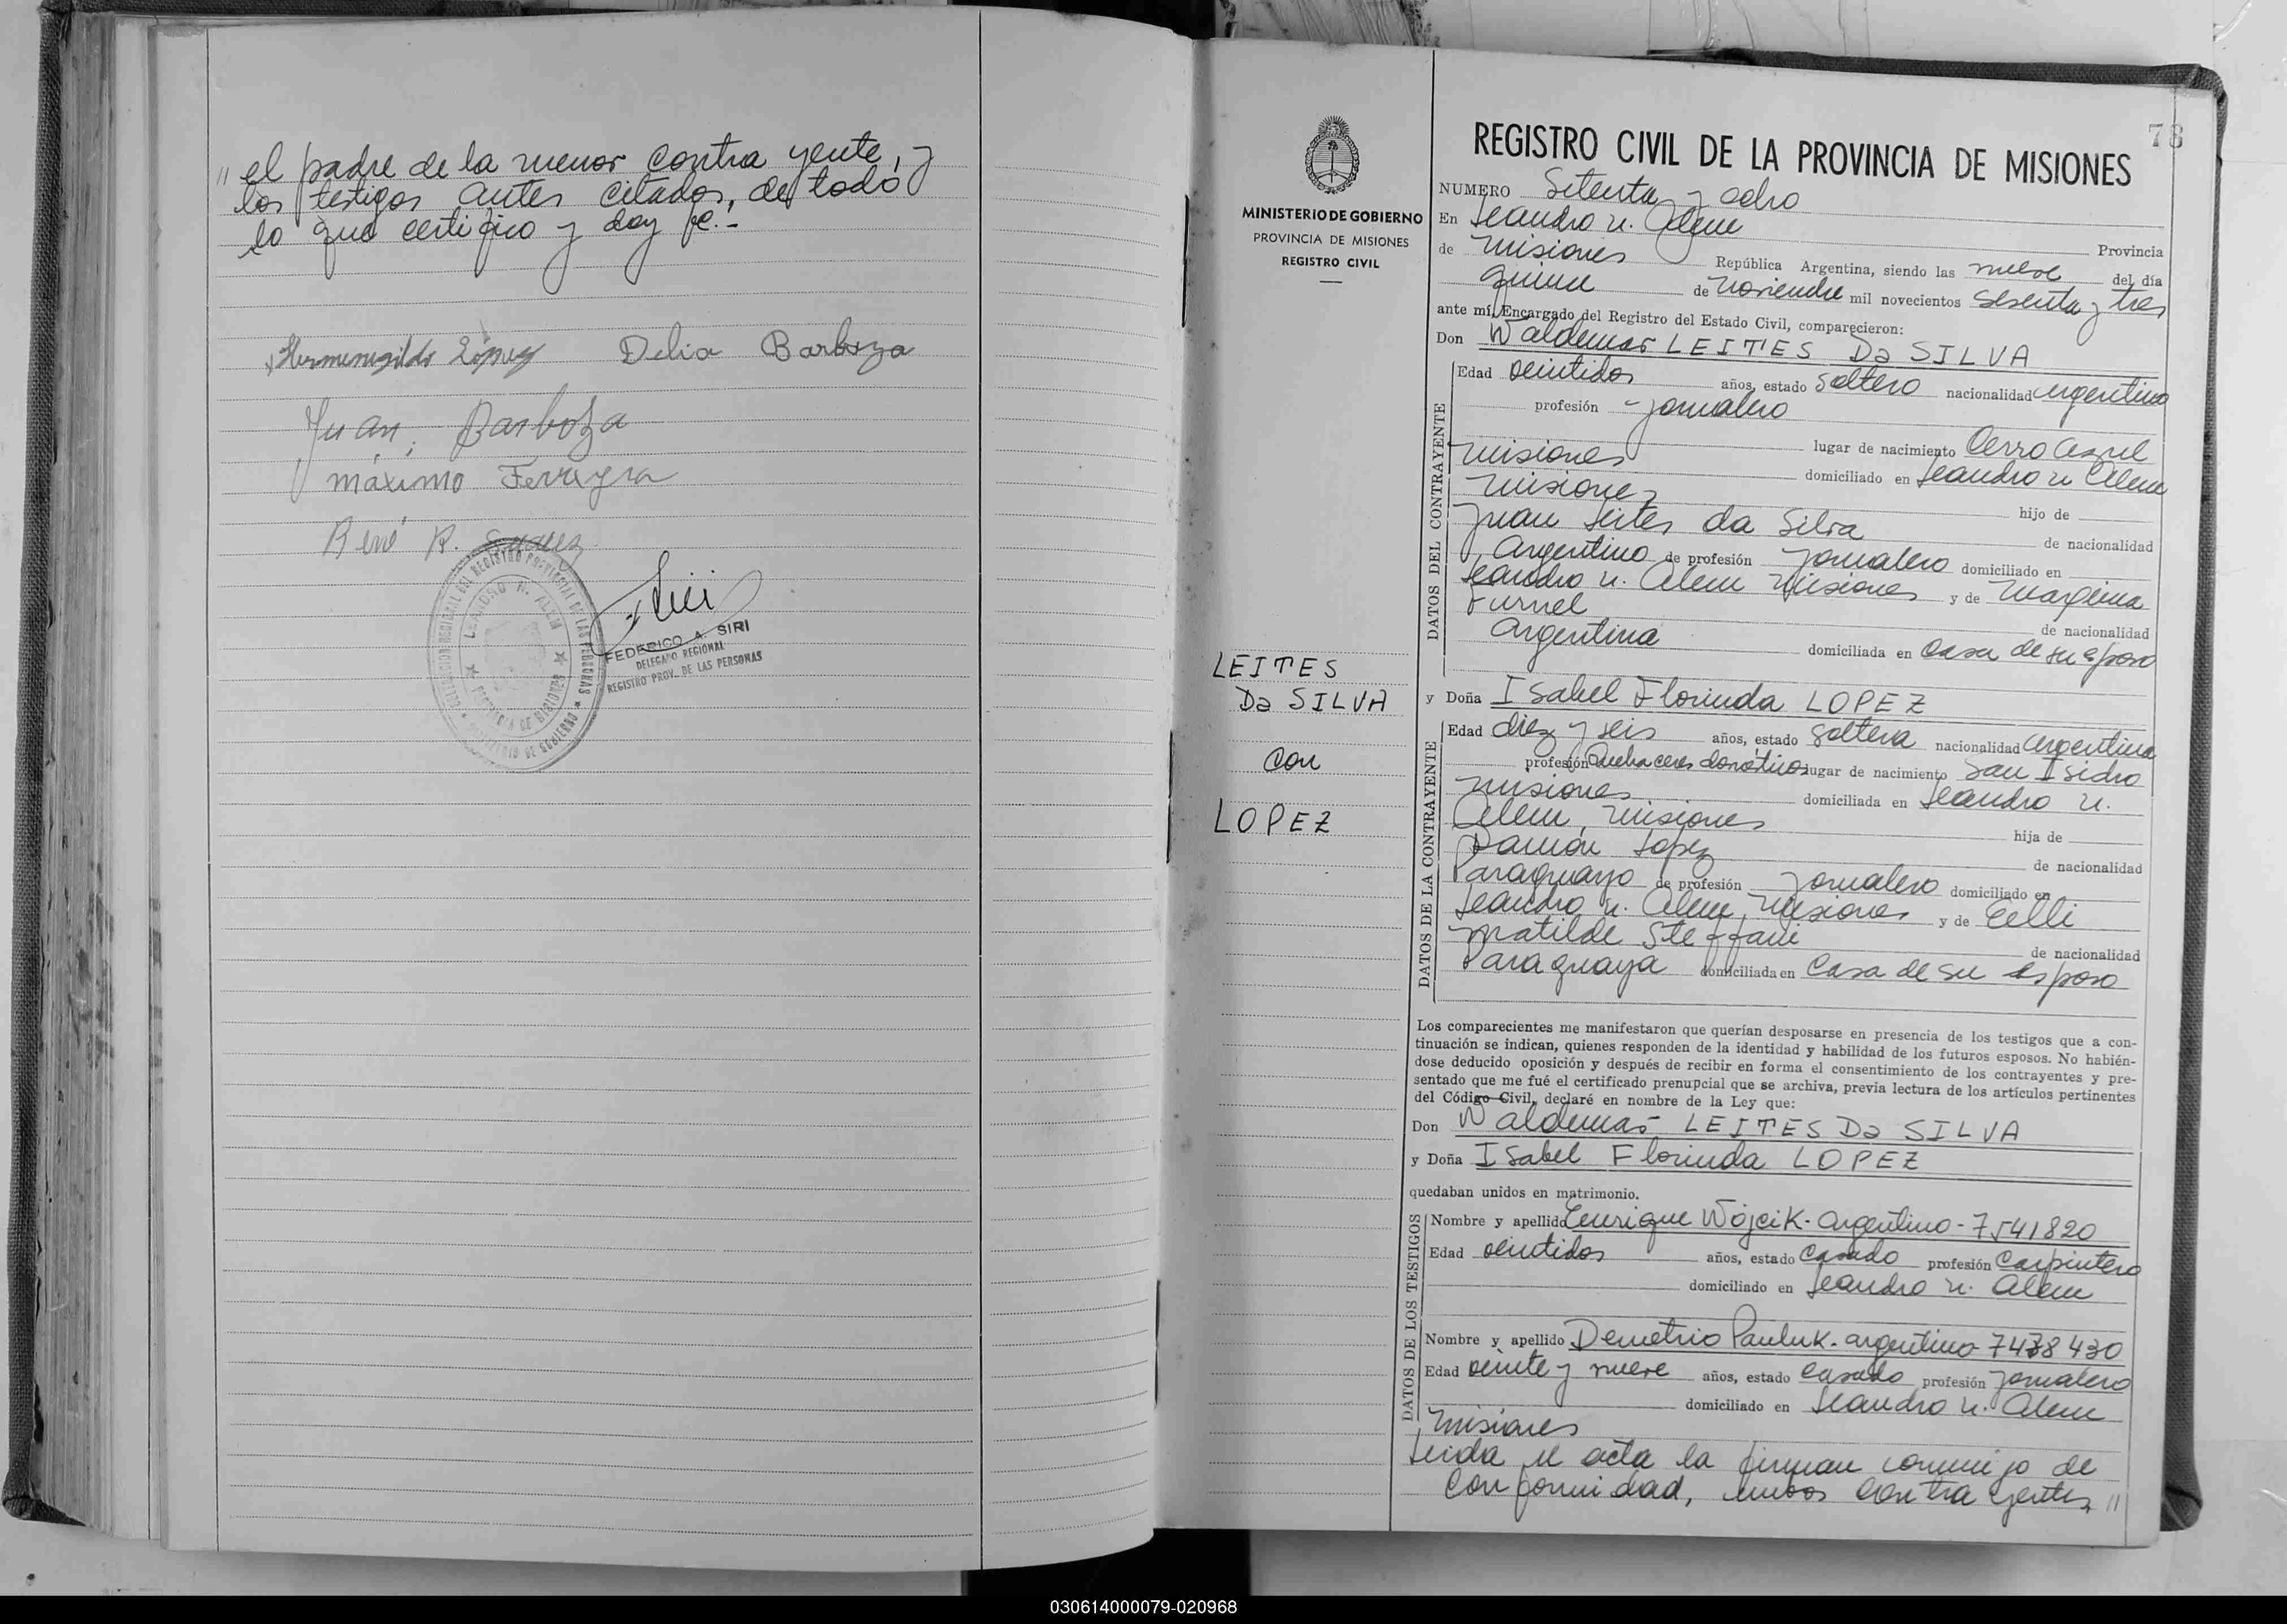 " el padre de la menor contra yente, y
los testigos antes citados, de todo
lo que certifico y doy fe.-
Hermenegildo López Delia Barboza
Juan Barboza
máximo Ferreyra
René R. Suarez
LEANDRO N. ALEM
PROVINCIA DE MISIONES
FEDERICO A. SIRI
DELEGADO REGIONAL
REGISTRO PROV. DE LAS PERSONAS
78
MINISTERIO DE GOBIERNO
PROVINCIA DE MISIONES
REGISTRO CIVIL
LEITES
Da SILVA
con
LOPEZ
REGISTRO CIVIL DE LA PROVINCIA DE MISIONES
NUMERO Setenta y ocho
En Leandro N. Alem
Provincia
de Misiones República Argentina, siendo las nueve del día
quince de Noviembre mil novecientos sesenta y tres
ante mí, Encargado del Registro del Estado Civil, comparecieron:
Don Waldemar LEITES Da SILVA
DATOS DEL CONTRAYENTE
Edad veintidos años, estado soltero nacionalidad argentino
profesión - jornalero
lugar de nacimiento Cerro Azul
Misiones domiciliado en Leandro N. Alem
Misiones hijo de
Juan Leites da Silva de nacionalidad
Argentino de profesión jornalero domiciliado en
Leandro N. Alem Misiones y de
de nacionalidad
Argentina domiciliada en casa de su esposo
y Doña Isabel Florinda LOPEZ
DATOS DE LA CONTRAYENTE
Edad diez y seis años, estado soltera nacionalidad argentina
profesión Quehaceres domésticos lugar de nacimiento San Isidro
Misiones domiciliada en Leandro N.
Alem, Misiones hija de
Ramón López de nacionalidad
Paraguayo de profesión jornalero domiciliado en
Leandro N. Alem, Misiones y de Celli
Matilde Steffani de nacionalidad
Paraguaya domiciliada en casa de su esposo
Los comparecientes me manifestaron que querían desposarse en presencia de los testigos que a con-
tinuación se indican, quienes responden de la identidad y habilidad de los futuros esposos. No habién-
dose deducido oposición y después de recibir en forma el consentimiento de los contrayentes y pre-
sentado que me fué el certificado prenupcial que se archiva, previa lectura de los artículos pertinentes
del Código Civil, declaré en nombre de la Ley que:
Don Waldemar LEITES Da SILVA
y Doña Isabel Florinda LOPEZ
quedaban unidos en matrimonio.
DATOS DE LOS TESTIGOS
Nombre y apellido Enrique Wójcik - argentino - 7541820
Edad veintidos años, estado casado profesión Carpintero
domiciliado en Leandro N. Alem
Nombre y apellido Demetrio Pauluk - argentino 7438430
Edad veinte y nueve años, estado casado profesión jornalero
domiciliado en Leandro N. Alem
Misiones
Leida el acta la firman conmigo de
conformidad, ambos contra yentes, "
030614000079-020968